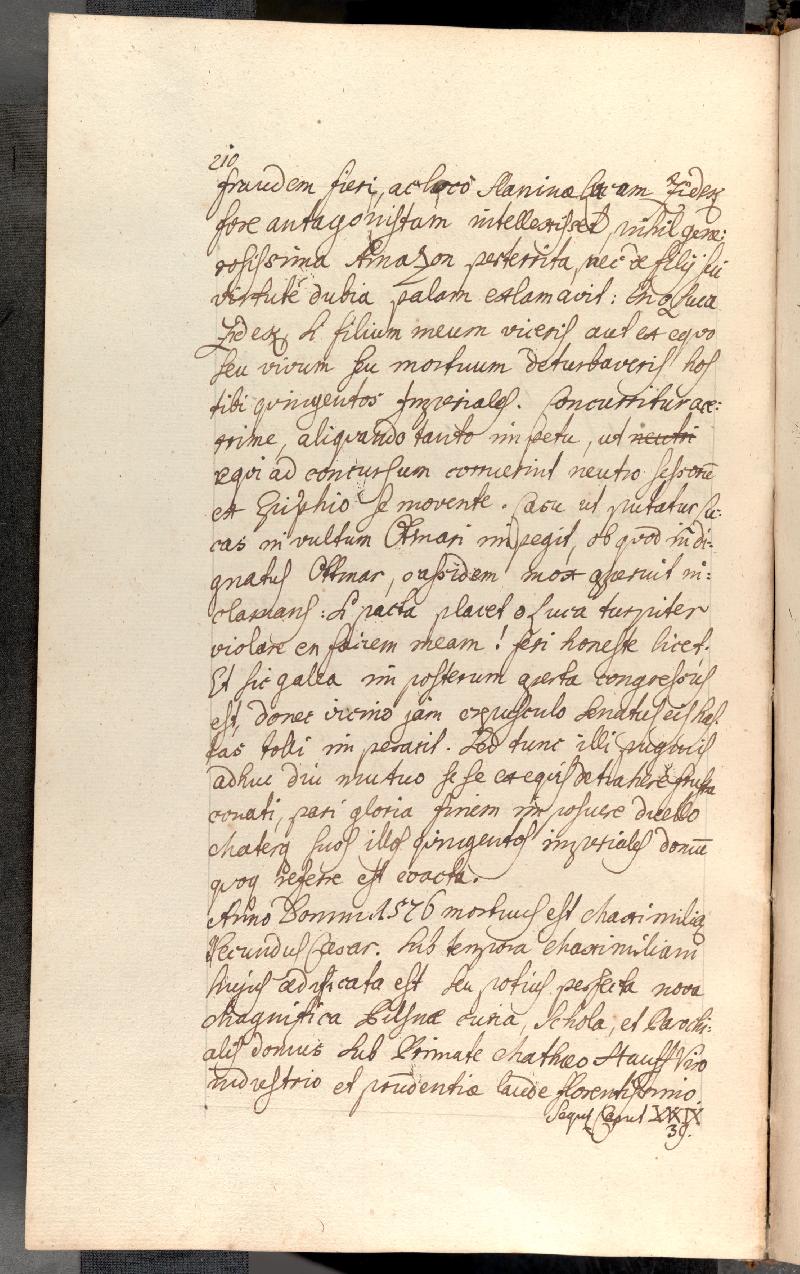 210
fraudem fieri, ac loco Slaninæ Lucam Zidek
fore antagonistam intellexisset, nihil gene:
rosissima Amazon perterrita, nec de filij sui
virtute dubia palam exlamavit: En o Luca
Zidek, si filium meum viceris aut ex equo
seu vivum seu mortuum deturbaveris hos
tibi quingentos Imperiales. Concurritur acer:
rime, aliquando tanto impetu, ut neutri
equi ad concursum corruerint neutro sessore
ex Ephiphio se movente. Casu ut putatur Lu:
cas in vultum Ottmari impegit, ob quod indi:
gnatus Ottmar, cassidem mox aperuit in:
clamans: si pacta placet o Luca turpiter
violare en faciem meam! feri honeste licet.
Et sic galea in posterum aperta congressus
est, donec vicino jam crepusculo Senatus eis has
tas tolli imperavit. Sed tunc illi pugnis
adhuc diu mutuo sese ex equis detrahere frustra
conati, pari gloria finem imposuere duello
Materq suos illos quingentos imperiales domū
quoq referre est coacta.
Anno Domini 1576 mortuus est Maximilia9
Secundus Cæsar. Sub tempora Maximiliani
hujus ædificata est seu potius perfecta nova
Magnifica Pilsnæ curia, Schola, et Parochi:
alis domus sub Primate Mathæo Stauff Viro
industrio et prudentiæ laude florentissimo.
Sequit Caput XXIX
39.